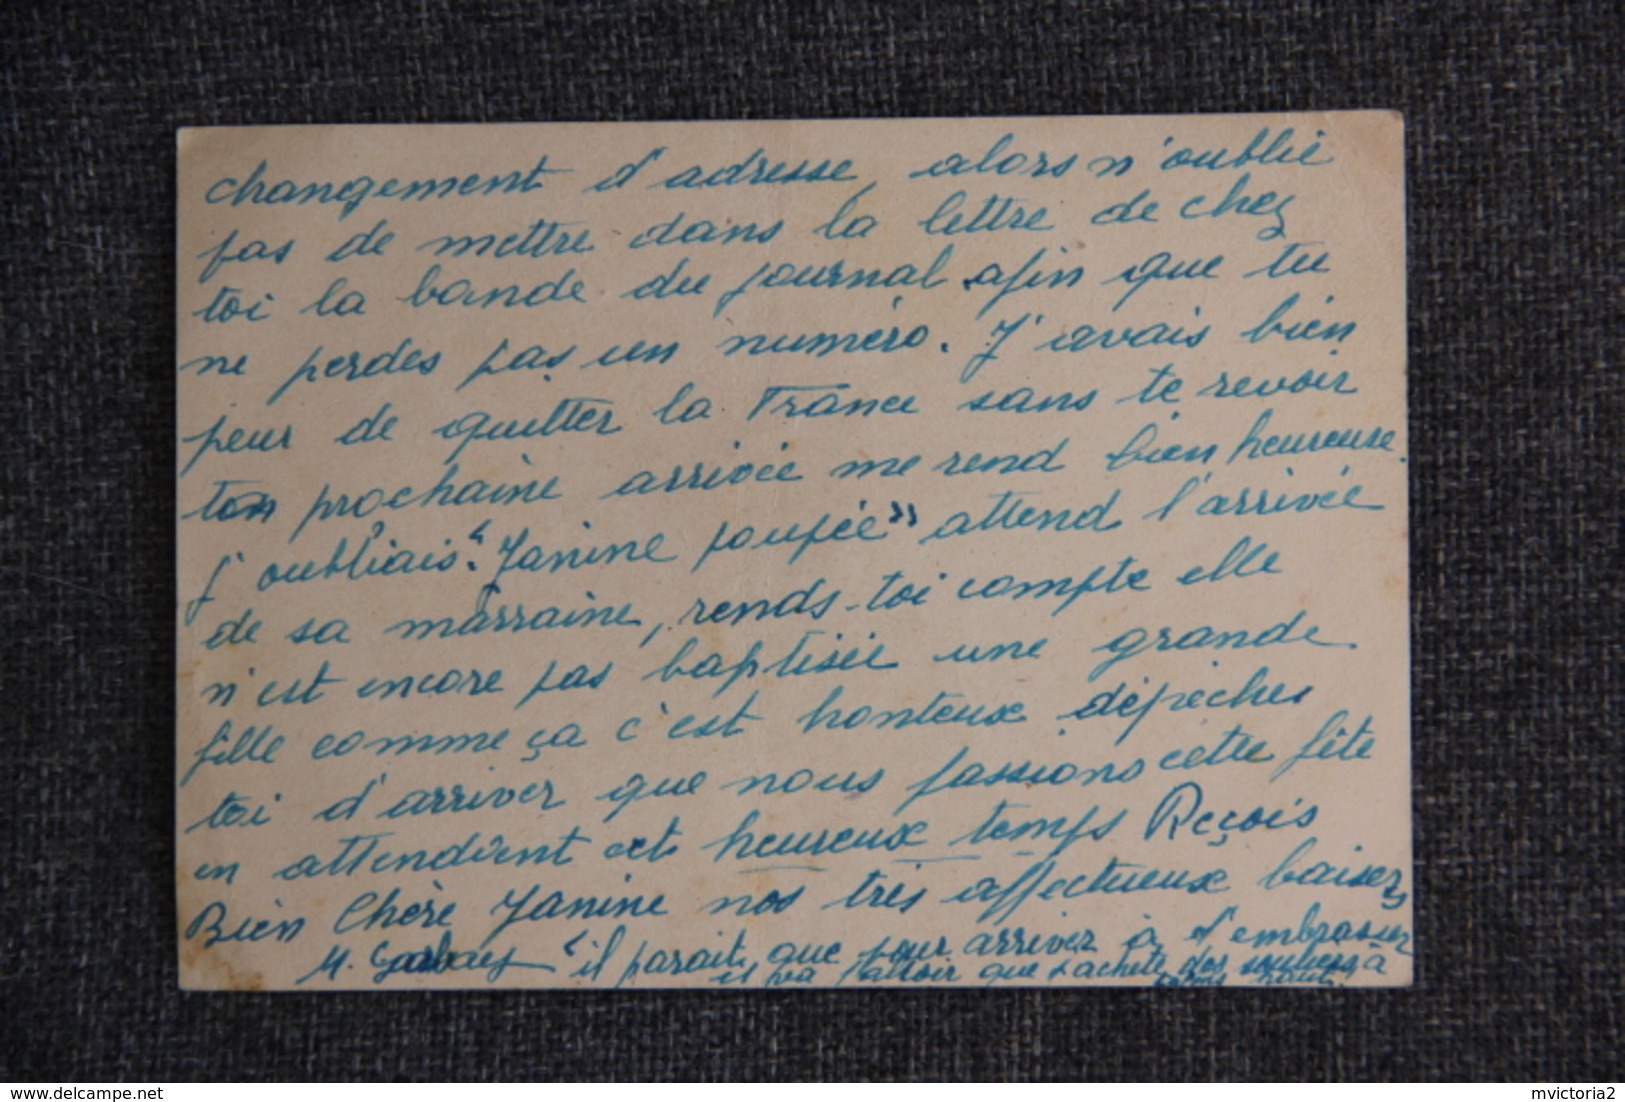 changement d'adresse, alors n'oublie
pas de mettre dans la lettre de chez
toi la bande du journal afin que tu
ne perdes pas un numéro. J'avais bien
peur de quitter la France sans te revoir
ton prochaine arrivée me rend bien heureuse.
J'oubliais. "Janine poupée" attend l'arrivée
de sa marraine, rends-toi compte elle
n'est encore pas baptisée une grande
fille comme ça c'est honteux dépèches
toi d'arriver que nous fassions cette fête
en attendant cet heureux temps Reçois
Bien Chère Janine nos très affectueux baisers
M. Garbaey "il parait que pour arriver à t'embrasser
il va falloir que j'achète des souliers à
talons hauts
www.delcampe.net
mvictoria2